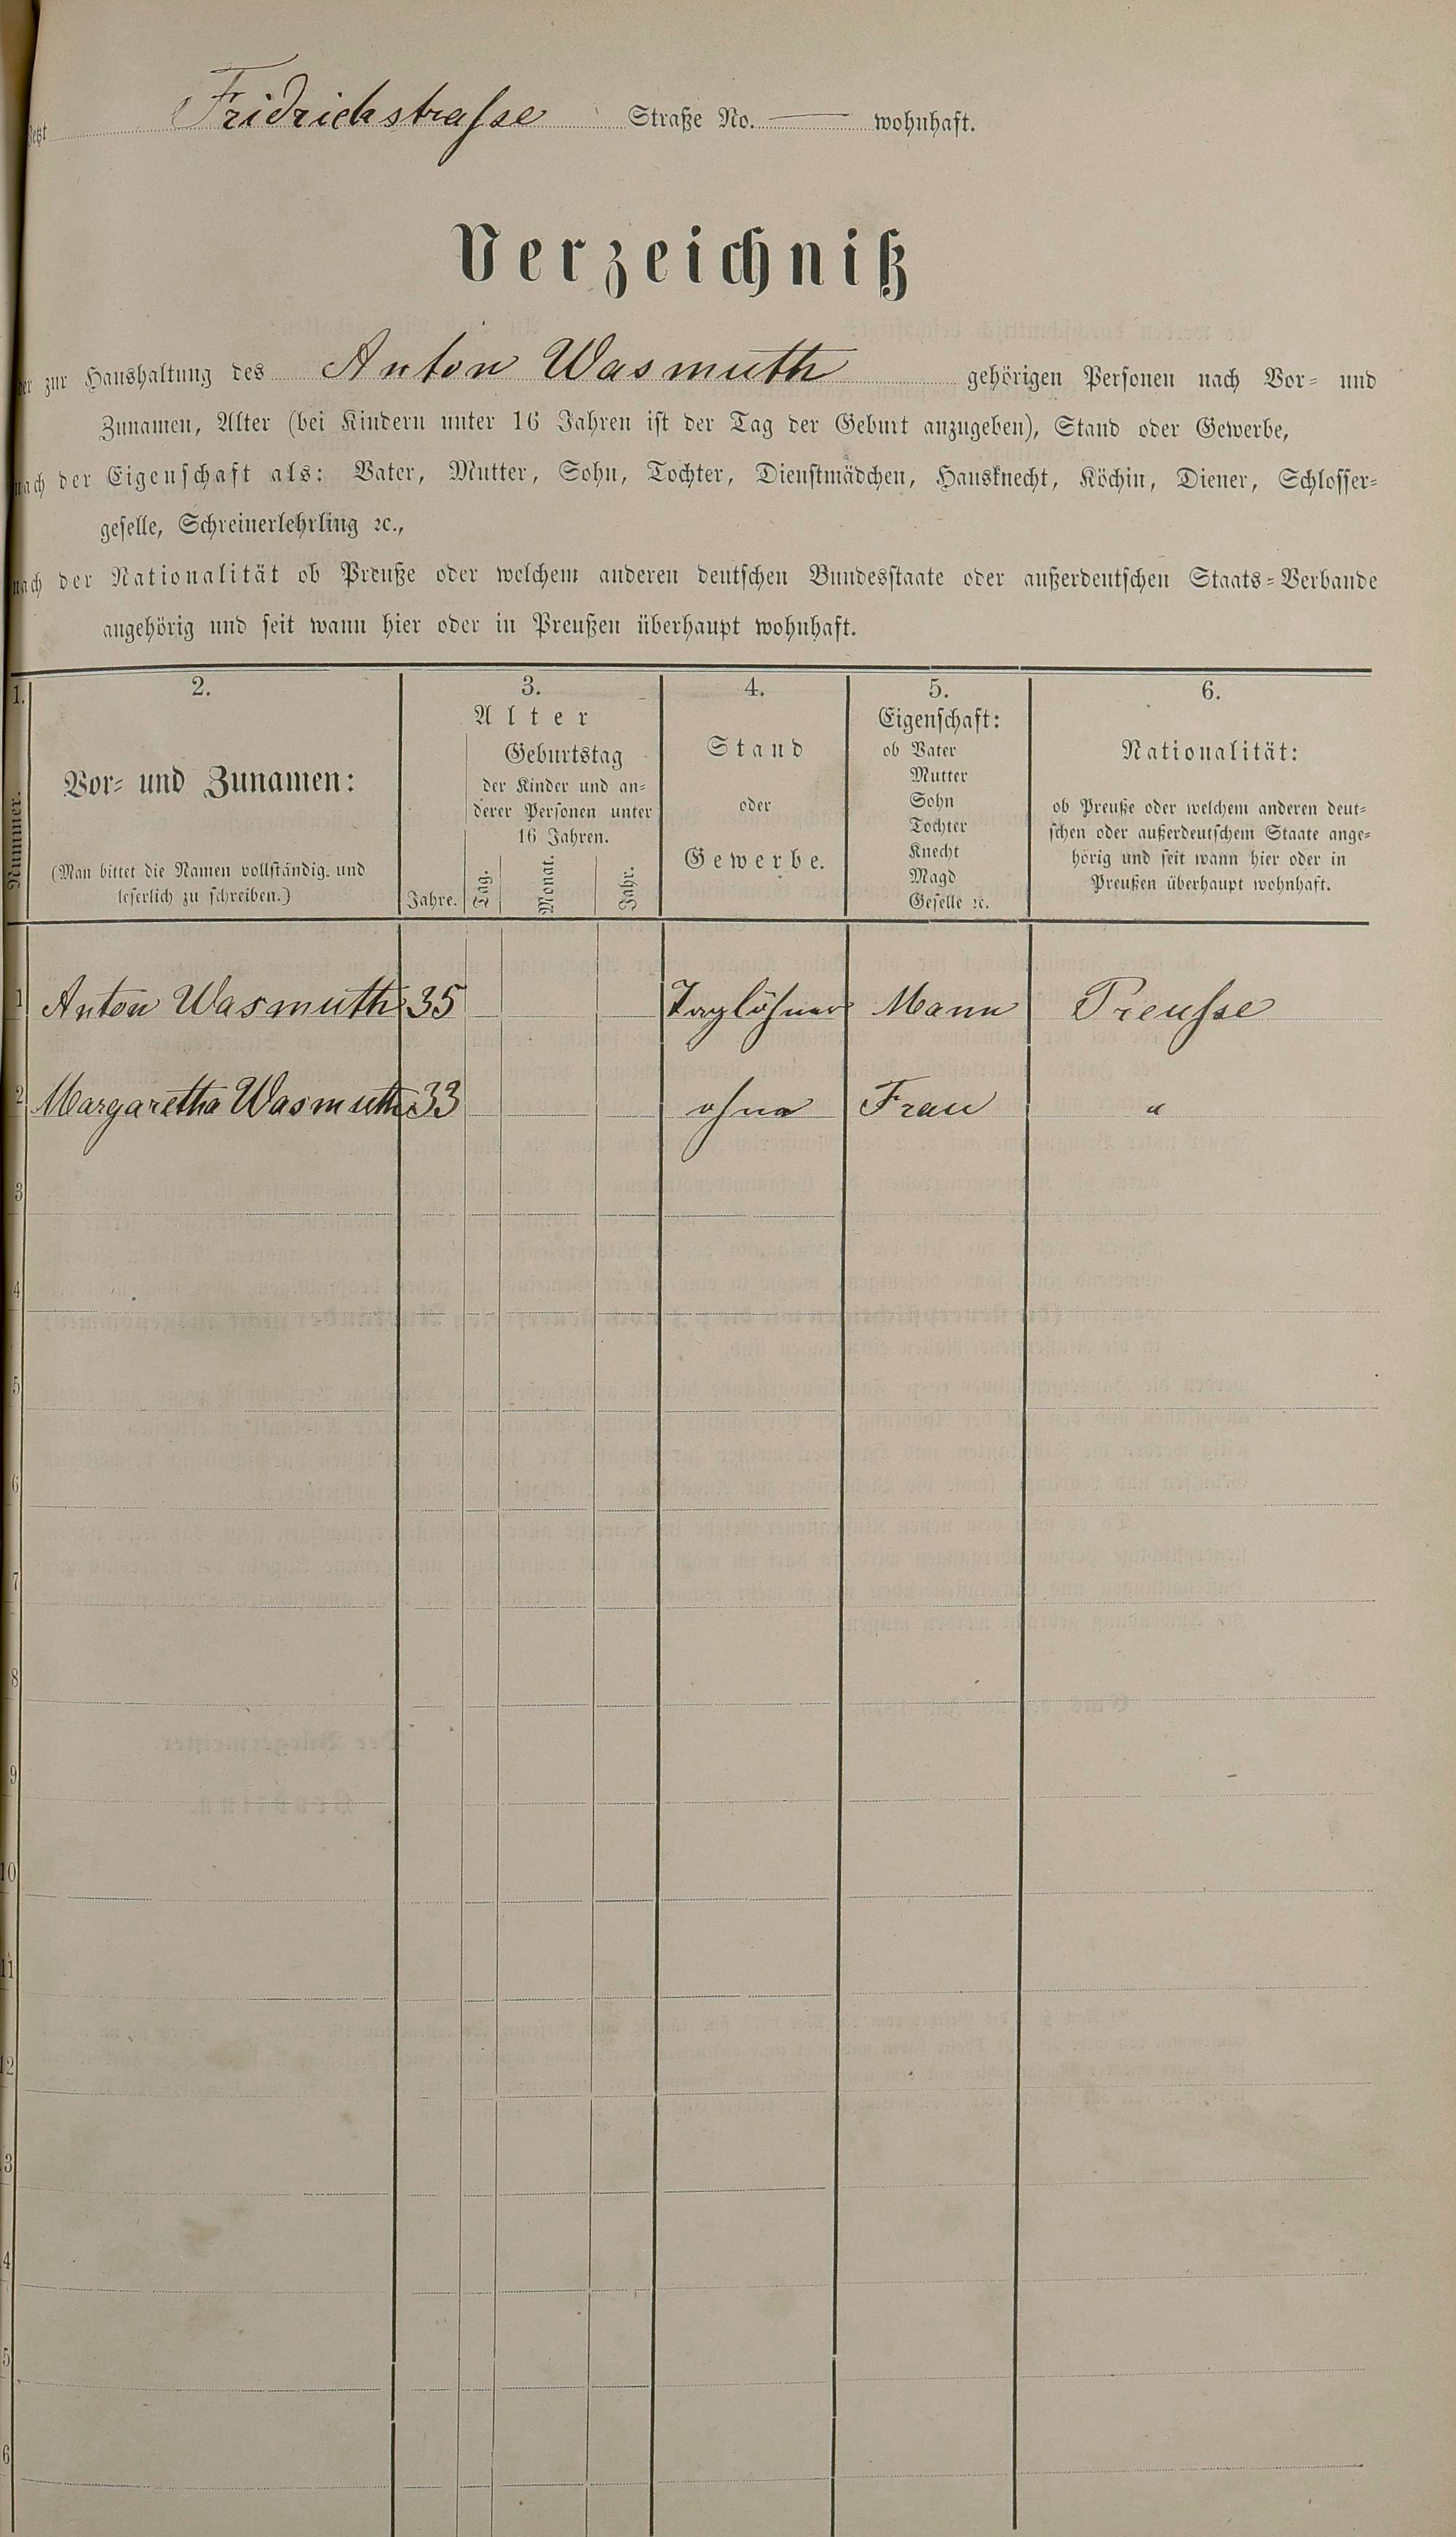 Jetzt Fridrichstraſse Straße No. — wohnhaft.
Verzeichniß
der zur Haushaltung des Anton Wasmuth gehörigen Personen nach Vor- und
Zunamen, Alter (bei Kindern unter 16 Jahren ist der Tag der Geburt anzugeben), Stand oder Gewerbe,
nach der Eigenschaft als: Vater, Mutter, Sohn, Tochter, Dienstmädchen, Hausknecht, Köchin, Diener, Schlosser-
geselle, Schreinerlehrling ꝛc.,
nach der Nationalität ob Preuße oder welchem anderen deutschen Bundesstaate oder außerdeutschen Staats-Verbande
angehörig und seit wann hier oder in Preußen überhaupt wohnhaft.
1.
Nummer.
2.
Vor- und Zunamen:
(Man bittet die Namen vollständig und
leserlich zu schreiben.)
3.
Alter
Jahre.
Geburtstag
der Kinder und an-
derer Personen unter
16 Jahren.
Tag.
Monat.
Jahr.
4.
Stand
oder
Gewerbe.
5.
Eigenschaft:
ob Vater
Mutter
Sohn
Tochter
Knecht
Magd
Geselle ꝛc.
6.
Nationalität:
ob Preuße oder welchem anderen deut-
schen oder außerdeutschem Staate ange-
hörig und seit wann hier oder in
Preußen überhaupt wohnhaft.
1 Anton Wasmuth 35 Taglöhner Mann Preuſse
2 Margaretha Wasmuth 33 ohne Frau "
3
4
5
6
7
8
9
10
11
12
3
4
5
6